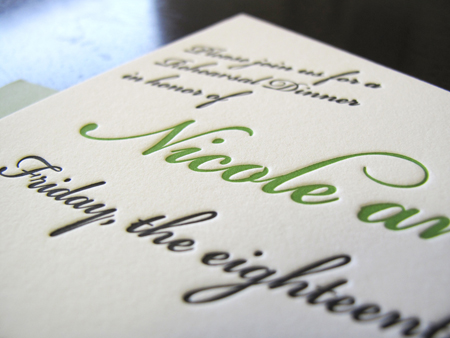 Please join us for a
Rehearsal Dinner
in honor of
Nicole an
Friday, the eighteent